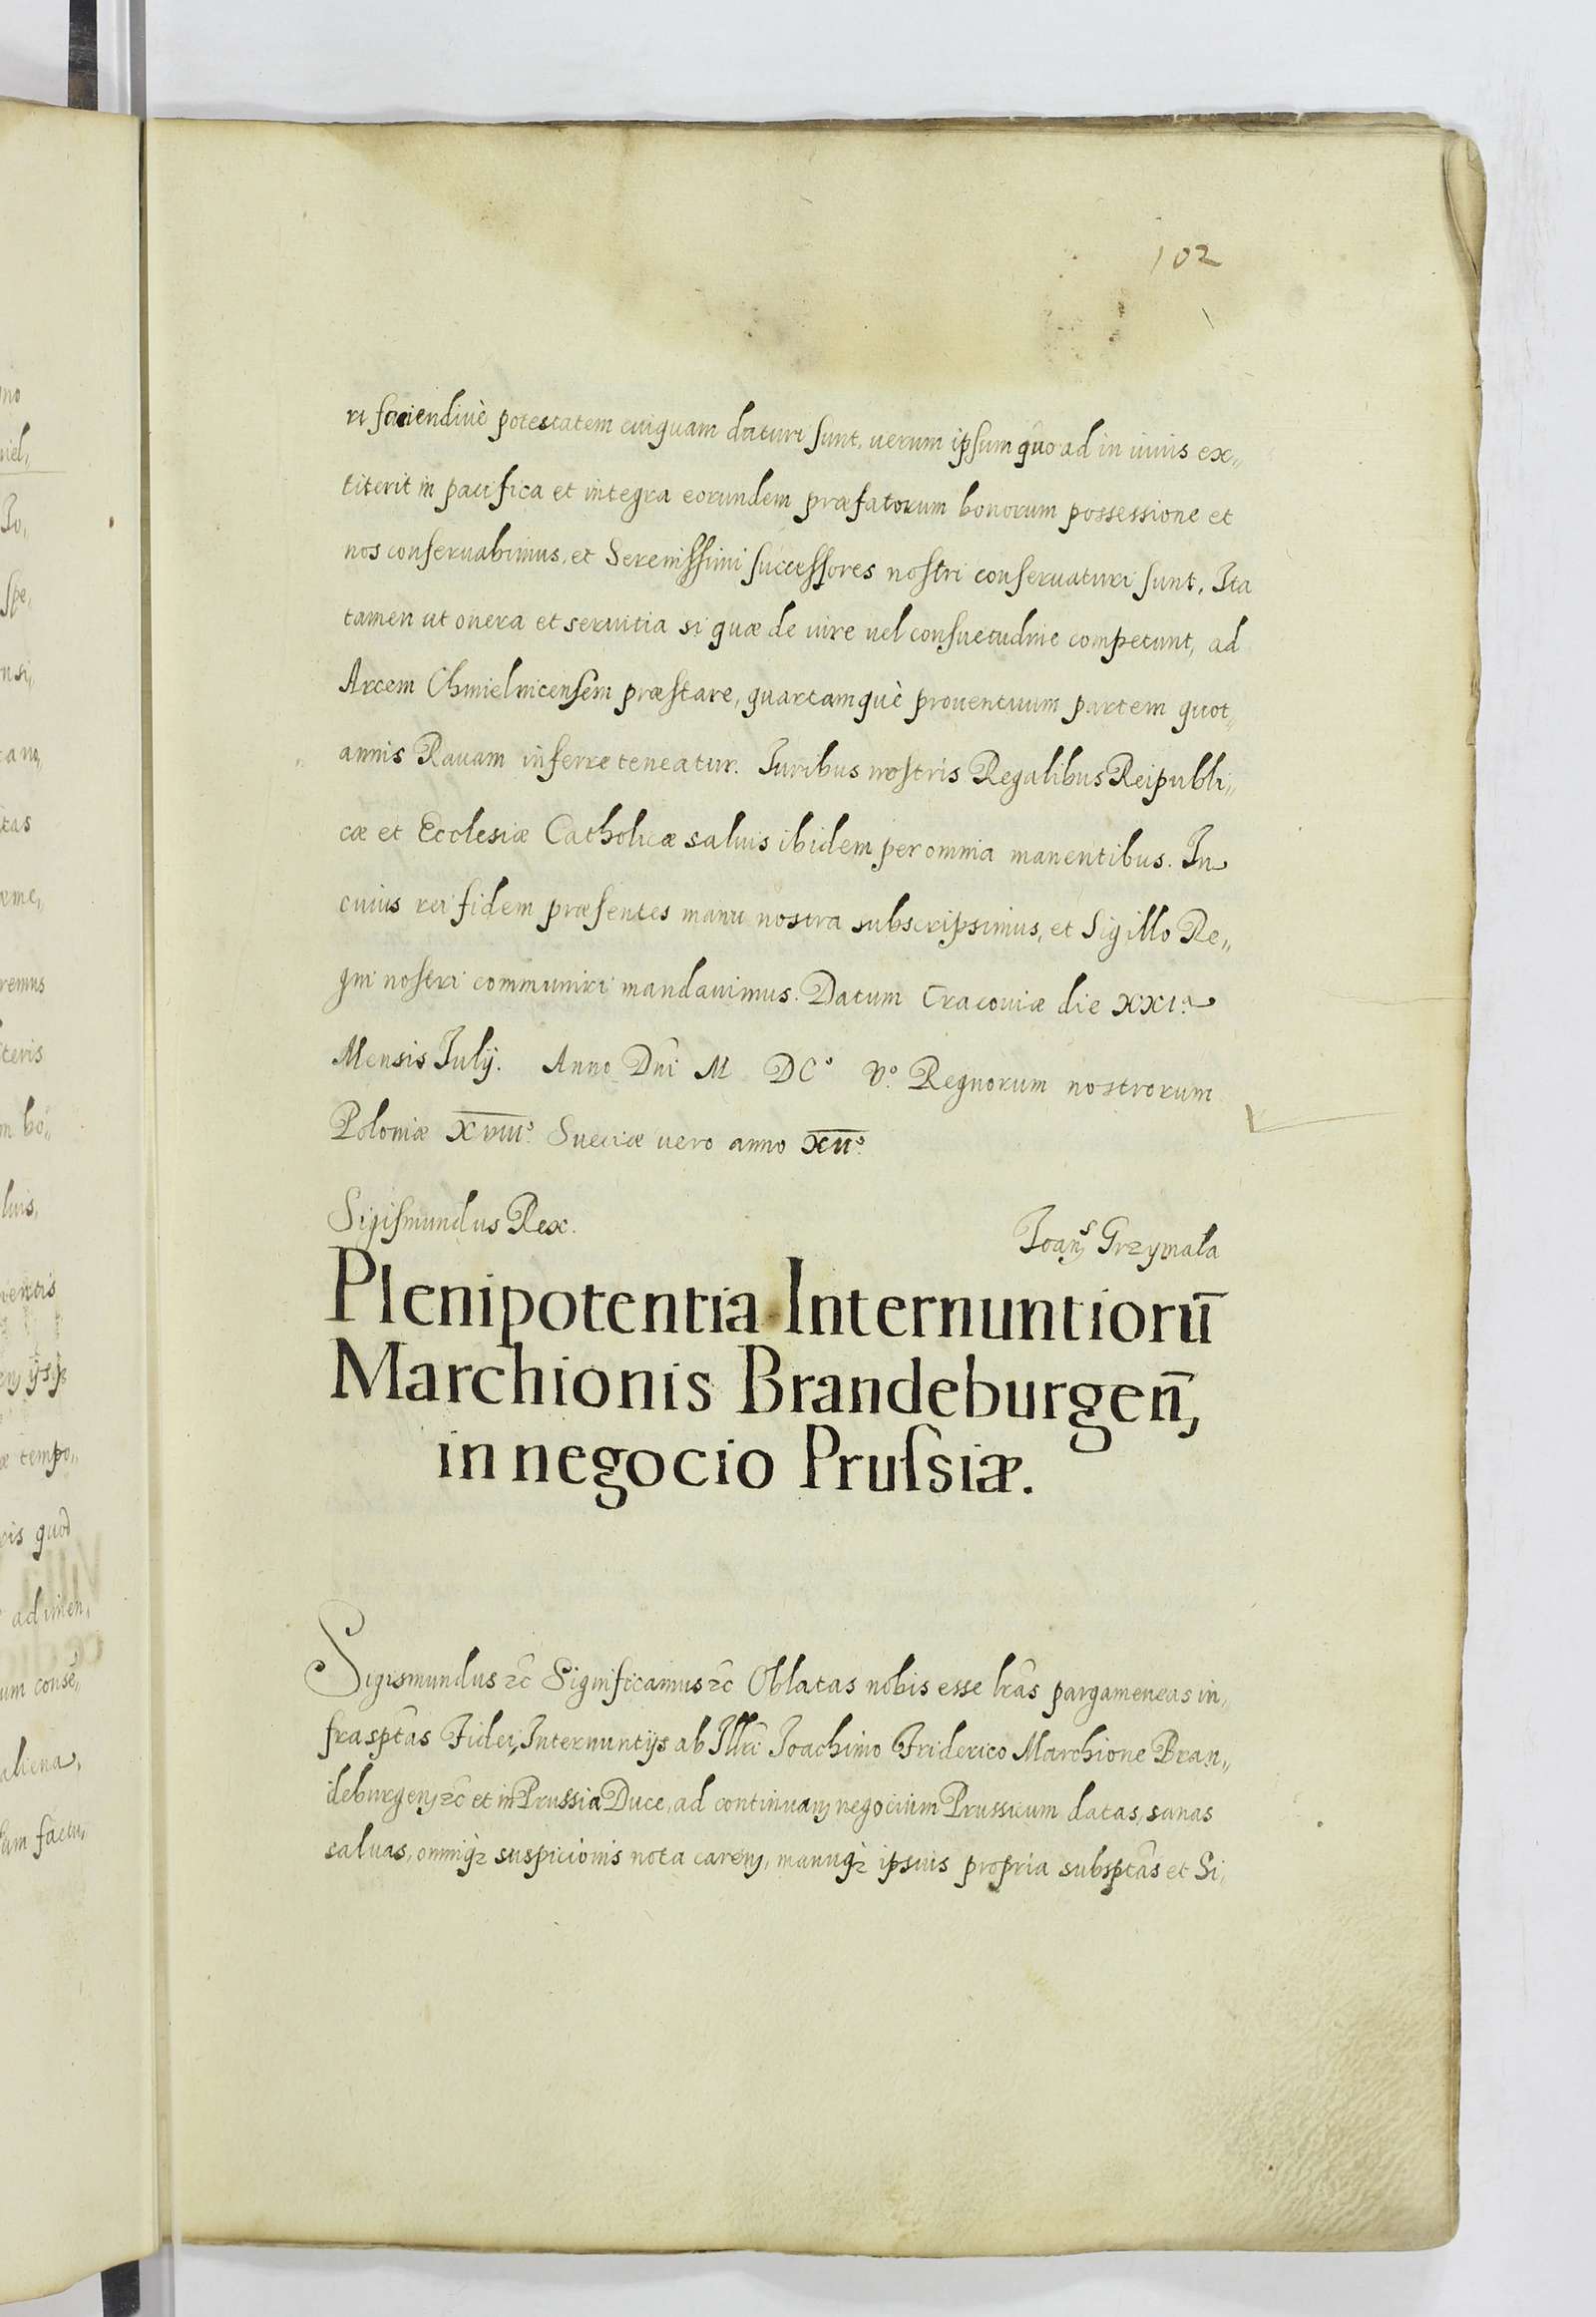 102
ri faciendiuè potestatem cuiquam daturi sunt, uerum ipsum quoad in uiuis ex„
titerit in pacifica et integra eorundem præfatorum bonorum possessione et
nos conseruabimus, et Serenissimi successores nostri conseruaturi sunt. Ita
tamen ut onera et seruitia si quæ de iure uel consuetudine competunt, ad
Arcem Chmielnicensem præstare, quartamquè prouentuum partem quot„
annis Rauam inferre teneatur. Iuribus nostris Regalibus Reipubli„
cæ et Ecclesiæ Catholicæ saluis ibidem per omnia manentibus. In
cuius rei fidem præsentes manu nostra subscripsimus, et Sigillo Re„
gni nostri communiri mandauimus. Datum Cracouiæ die XXIa
Mensis Iulij. Anno Dni M DCo Vo. Regnorum nostrorum
Poloniæ XVIIIo. Sueciæ uero anno XIIo.
Sigismundus Rex.
Joans Grzymała
Plenipotentia Internuntiorū
Marchionis Brandeburgen̄,
in negocio Prussiæ.
Sigismundus &c Significamus &c Oblatas nobis esse lr̃as pargameneas in„
frasptãs Fidei, Internuntijs ab Illri Joachimo Friderico Marchione Bran„
deburgen, &c et in Prussia Duce, ad continuan, negocium Prussicum datas, sanas
saluas, omniq; suspicionis nota caren, manuq; ipsius propria subsptãs et Si„
mo
niel,
Jo,
spe,
nsi,
tas
reme,
remus
teris
m bo„
luis,
uentis
æ tempo„
ris quod
ad imen,
um conse„
aliena,